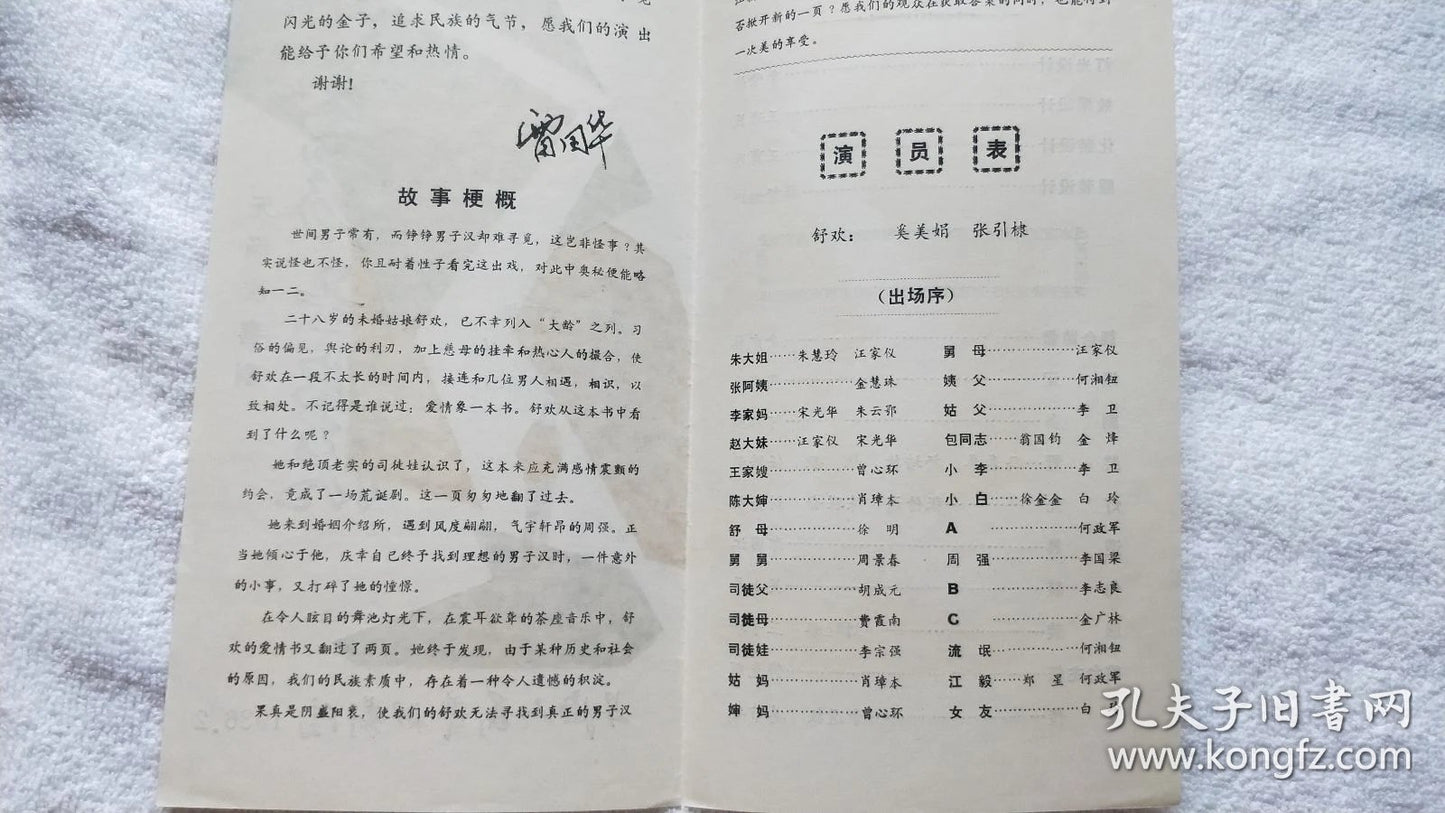 闪光的金子，追求民族的气节，愿我们的演出
能给于你们希望和热情。
谢谢！
雷国华
故事梗概
世间男子常有，而铮铮男子汉却难寻觅，这岂非怪事？其
实说怪也不怪，你且耐着性子看完这出戏，对此中奥秘便能略
知一二。
二十八岁的未婚姑娘舒欢，已不幸列入“大龄”之列。习
俗的偏见，舆论的利刃，加上慈母的挂牵和热心人的撮合，使
舒欢在一段不太长的时间内，接连和几位男人相遇，相识，以
致相处。不记得是谁说过：爱情象一本书。舒欢从这本书中看
到了什么呢？
她和绝顶老实的司徒娃认识了，这本来应充满感情震颤的
约会，竟成了一场荒诞剧。这一页匆匆地翻了过去。
她来到婚姻介绍所，遇到风度翩翩，气宇轩昂的周强。正
当她倾心于他，庆幸自己终于找到理想的男子汉时，一件意外
的小事，又打碎了她的憧憬。
在令人眩目的舞池灯光下，在震耳欲聋的茶座音乐中，舒
欢的爱情书又翻过了两页。她终于发现，由于某种历史和社会
的原因，我们的民族素质中，存在着一种令人遗憾的积淀。
果真是阴盛阳衰，使我们的舒欢无法寻找到真正的男子汉
否掀开新的一页？愿我们的观众在获取答案的同时，也能得到
一次美的享受。
演员表
舒欢： 奚美娟 张引棣
（出场序）
朱大姐……朱慧玲 汪家仪
张阿姨……………金慧珠
李家妈……宋光华 朱云鄂
赵大妹……汪家仪 宋光华
王家嫂……………曾心环
陈大婶……………肖璋本
舒母……………徐明
舅舅……………周景春
司徒父……………胡成元
司徒母……………费霞南
司徒娃……………李宗强
姑妈……………肖璋本
婶妈……………曾心环
舅母……………汪家仪
姨父……………何湘钮
姑父……………李卫
包同志……翁国钧 金烽
小李……………李卫
小白……徐金金 白玲
A……………何政军
周强……………李国梁
B……………李志良
C……………金广林
流氓……………何湘钮
江毅……郑星 何政军
女友……………白
孔夫子旧书网
www.kongfz.com